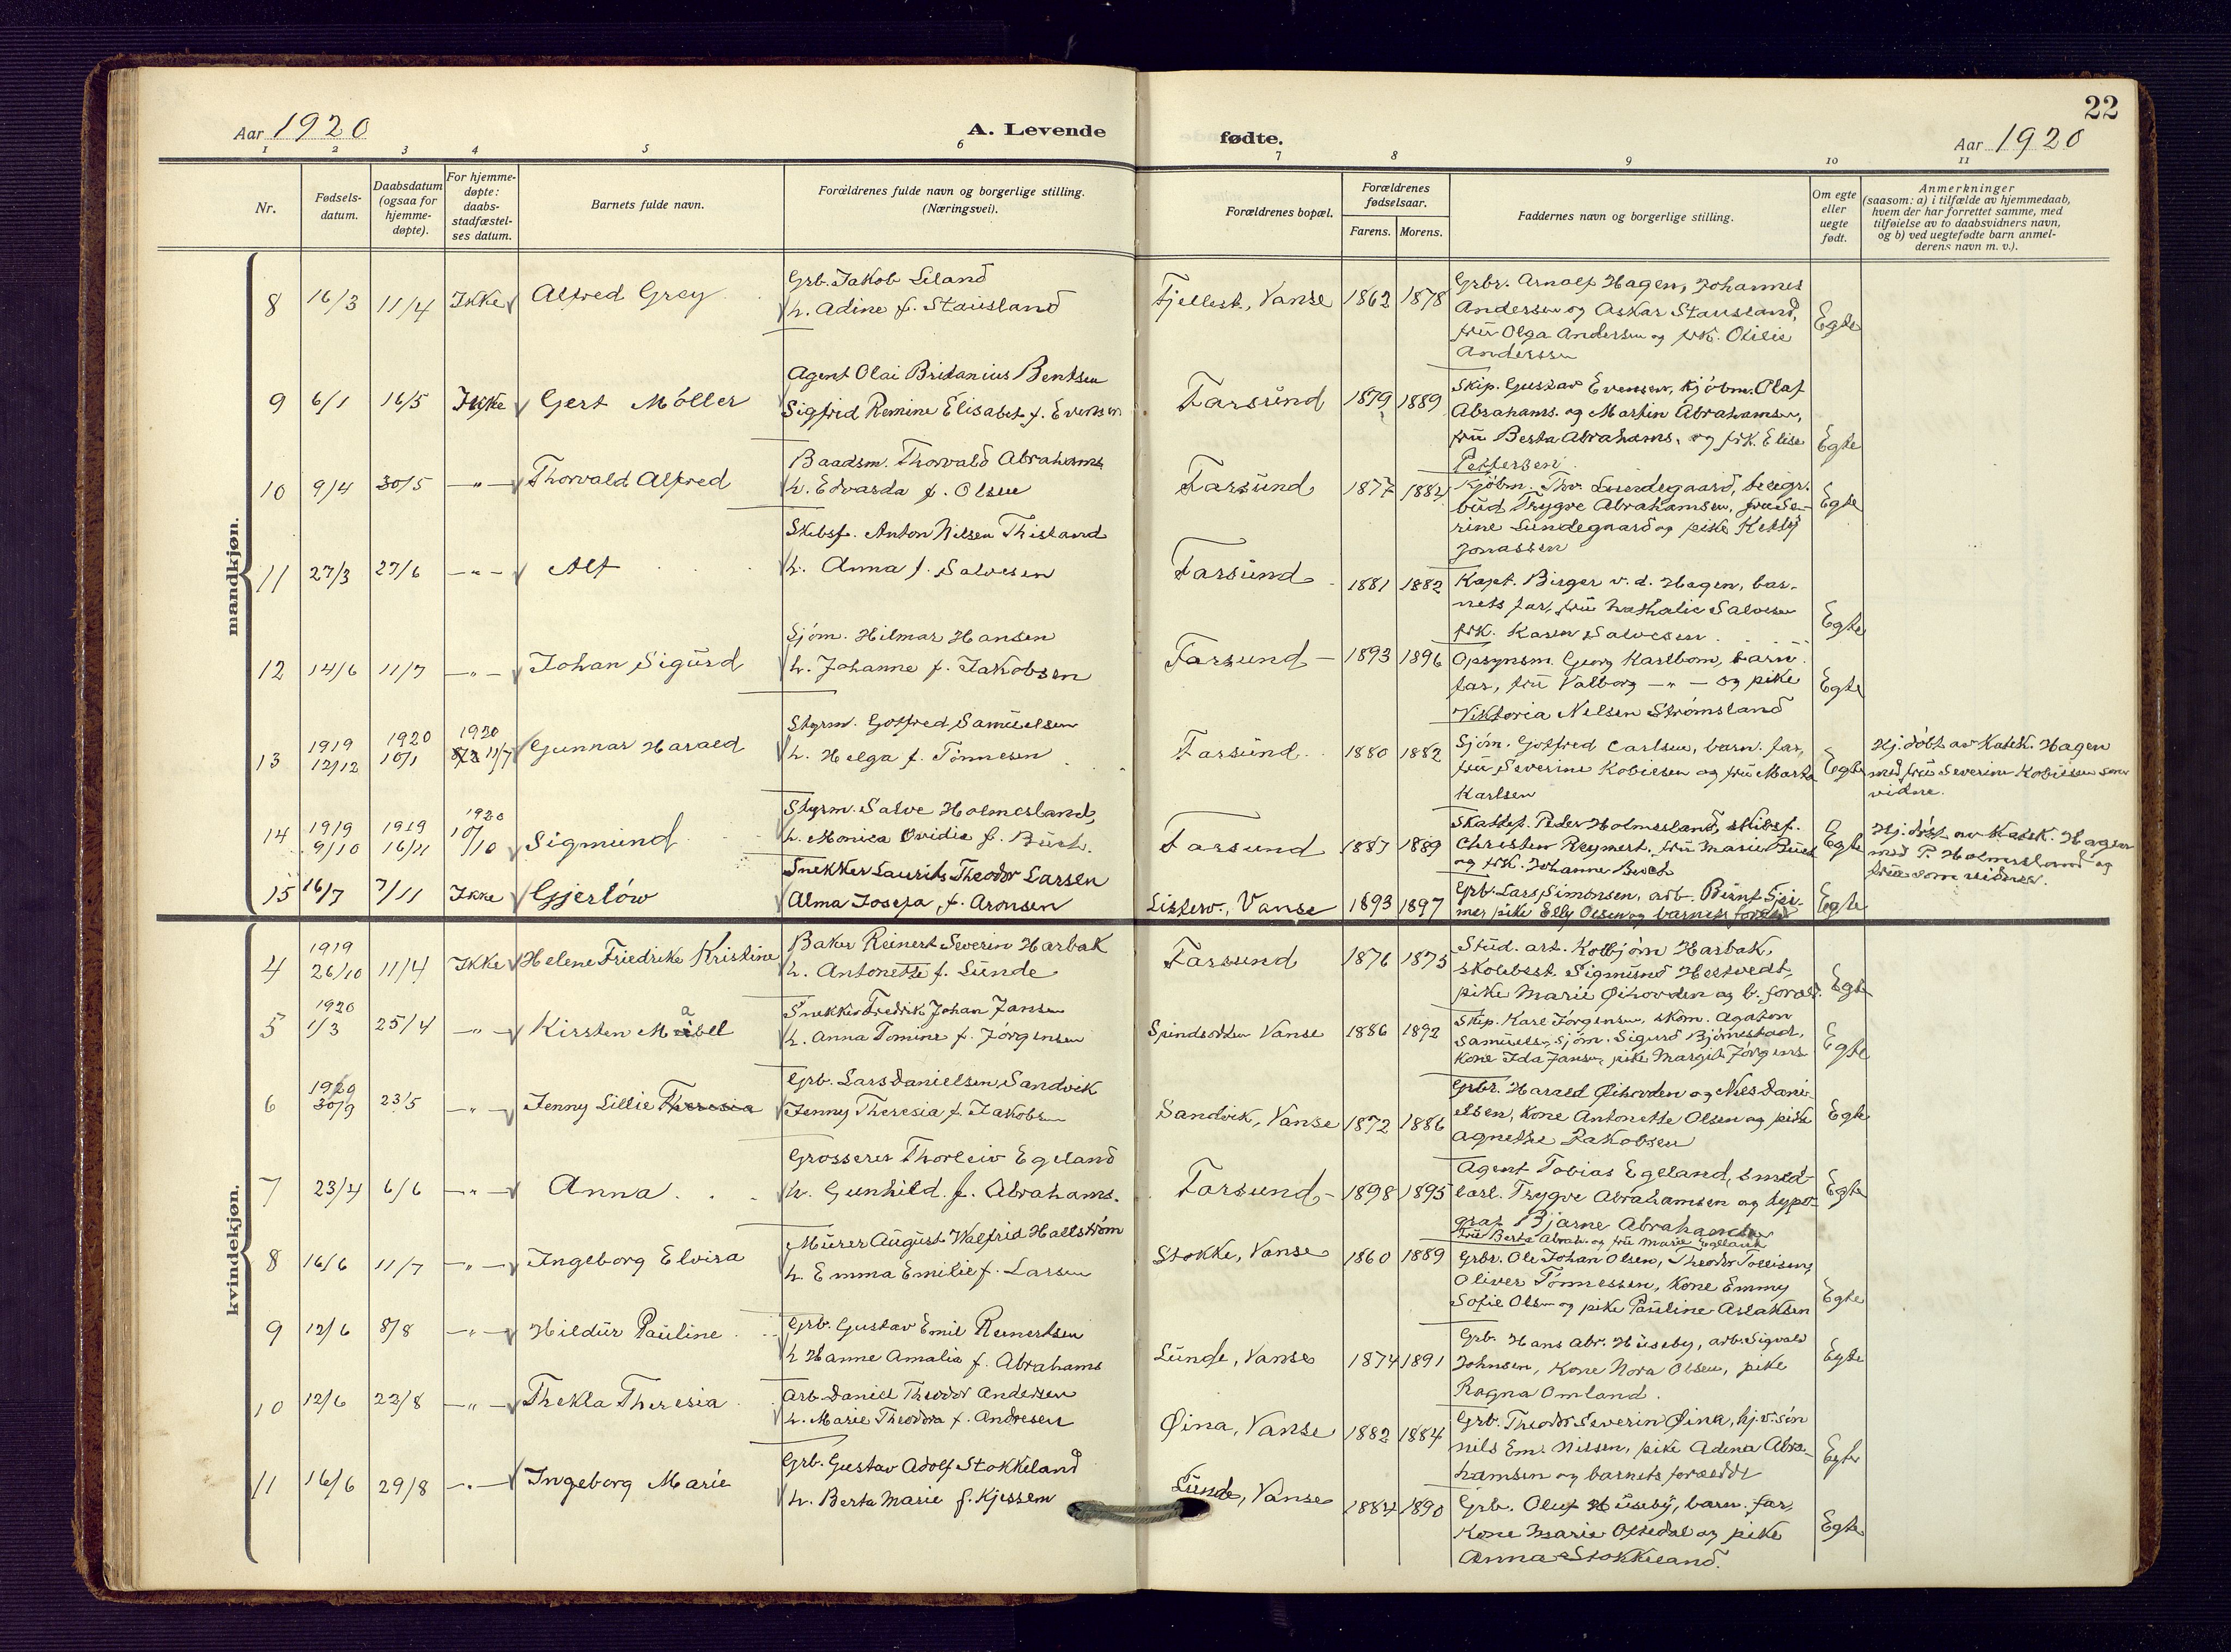 22
Aar 1920
A. Levende
fødte.
Aar 1920
1 2 3 4 5 6 7 8 9 10 11
Nr.
Fødsels-
datum.
Daabsdatum
(ogsaa for
hjemme-
døpte).
For hjemme-
døpte:
daabs-
stadfæstel-
ses datum.
Barnets fulde navn.
Forældrenes fulde navn og borgerlige stilling.
(Næringsvei).
Forældrenes bopæl.
Forældrenes
fødselsaar.
Farens. Morens.
Faddernes navn og borgerlige stilling.
Om egte
eller
uegte
født.
Anmerkninger
(saasom: a) i tilfælde av hjemmedaab,
hvem der har forrettet samme, med
tilføielse av to daabsvidners navn,
og b) ved uegtefødte barn anmel-
derens navn m. v.).
mandkjøn.
8 16/3 11/4 Ikke Alfred Grey
Grb. Jakob Leland
h. Adine f. Stausland
Fjellest., Vanse 1862 1878
Grbr. Arnolf Hagen, Johannes
Andersen og Askar Stausland,
fru Olga Andersen og frk. Otilie
Anderssen
Egte
9 6/1 16/5 Ikke Gert Möller
Agent Olai Britanius Bentsen
Sigfrid Remine Elisabet f. Evensen
Farsund 1879 1889
Skip. Gustav Evensen, Kjöbm. Olaf
Abrahams. og Martin Abrahamsen,
fru Berta Abrahams. og frk. Elise
Pettersen
Egte
10 9/4 30/5 —"— Thorvald Alfred
Baadsm. Thorvald Abrahams.
h. Edvarda f. Olsen
Farsund 1877 1884
Kjöbm. Thv. Lundegaard, telegr.
bud Trygve Abrahamsen, fru Se-
rine Lundegaard og pike Ketty
Jonassen
Egte
11 27/3 27/6 —"— Alf
Skibsf. Anton Nilsen Thistand
h. Anna f. Salvesen
Farsund 1881 1882
Kapt. Birger v. d. Hagen, bar-
nets far, fru Nathalie Salvesen
frk. Karen Salvesen
Egte
12 14/6 11/7 —"— Johan Sigurd
Sjöm. Hilmar Hansen
h. Johanne f. Jakobsen
Farsund 1893 1896
Opsynsm. Georg Karlbom, barn.
far, fru Valborg —"— og pike
Viktoria Nilsen Strömsland
Egte
13 1919 12/12 1920 10/1 1920 11/7 Gunnar Harald
Styrm. Gotfred Samuelsen
h. Helga f. Tönnesen
Farsund 1880 1882
Sjöm. Gotfred Carlsen, barn. far,
fru Severine Kobiesen og fru Marta
Karlsen
Egte
Hj. döbt av Katek. Hagen
med fru Severine Kobiesen som
vidne.
14 1919 9/10 1919 16/11 1920 10/10 Sigmund
Styrm. Salve Holmesland,
h. Monica Ovidie f. Buch.
Farsund 1887 1889
Skattef. Peder Holmesland, skibsf.
Christen Reymert, fru Marie Buch
og frk. Johanne Buch
Egte
Hj. döbt av Katek. Hagen
med P. Holmesland og
frue som vidner.
15 16/7 7/11 Ikke Gjerlöw
Snekker Laurits Theodor Larsen
Alma Josefa, f. Aronsen
Listerv., Vanse 1893 1897
Grb. Lars Simonsen, arb. Bernt
mer pike Elly Olsen og barnets foreld
Egte
kvindekjøn.
4 1919 26/10 11/4 Ikke Helene Friedrike Kristine
Baker Reinert Severin Harbak
h. Antonette f. Lunde
Farsund 1876 1875
Stud. art. Kolbjörn Harbak,
skolebest. Sigmund Hestvedt,
pike Marie Øihovden og b. foræld.
Egte
5 1920 1/3 25/4 —"— Kirsten Mabell
Snekker Fredrik Johan Jansen
h. Anna Tomine f. Jörgensen
Spindsodden Vanse 1886 1892
Skip. Karl Jörgensen, skom. Agaton
Samuels., sjöm. Sigurd Björnestad,
kone Ida Jansen, pike Margit Jörgens
Egte
6 1920 30/9 23/5 —"— Jenny Lillie Theresia
Grb. Lars Danielsen Sandvik
Jenny Theresia f. Jakobsen
Sandvik, Vanse 1872 1886
Grbr. Harald Øihovden og Nils Dani-
elsen, kone Antonette Olsen og pike
Agnethe Jakobsen
Egte
7 23/4 6/6 —"— Anna
Grosserer Thorleiv Egeland
h. Gunhild f. Abrahams.
Farsund 1898 1895
Agent Tobias Egeland, smed-
lærl. Trygve Abrahamsen og typo-
graf Bjarne Abrahamsen
fru Berta Abrah. og fru Marie Egeland
Egte
8 16/6 11/7 —"— Ingeborg Elvira
Murer August Walfrid Hallström
h. Emma Emilie f. Larsen
Stokke, Vanse 1860 1889
Grbr. Ole Johan Olsen, Theodor Tollisen,
Oliver Tönnessen, kone Emmy
Sofie Olsen og pike Pauline Aslaksen
Egte
9 12/6 8/8 —"— Hildur Pauline
Grb. Gustav Emil Reinertsen
h Hanne Amalia f. Abrahams
Lunde, Vanse 1874 1891
Grb. Hans Abr. Huseby, arb. Sigvald
Johnsen, kone Nora Olsen, pike
Ragna Omland.
Egte
10 12/6 22/8 —"— Thekla Theresia
Arb. Daniel Theodor Andersen
h. Marie Theodora f. Andresen
Øina, Vanse 1882 1884
Grb. Theodor Severin Øina, hj.v. sön
Nils Em. Nilsen, pike Adena Abra-
hamsen og barnets forældre
Egte
11 16/6 29/8 —"— Ingeborg Marie
Grb. Gustav Adolf Stokkeland
h. Berta Marie f. Kjessem
Lunde, Vanse 1884 1890
Grb. Oluf Huseby, barn. far,
kone Marie Ofsedal og pike
Anna Stokkeland.
Egte